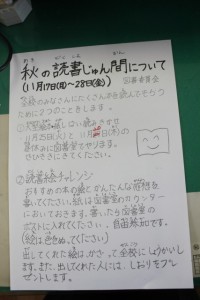 秋の読書じゅん間について
(11月17日(月)〜28日(金))
図書委員会
全校のみなさんにたくさん本を読んでもらう
ために2つのことをします。
11月25日(火)と11月
昼休みに図書室でやります。
ぜひききにきてください。
②読書絵チャレンジ
おすすめの本の絵とかんたんな感想を
書いてください。紙は図書室のカウンター
においておきます。書いたら図書室の
ポストに入れてください。自由参加です。
(絵は色をぬってください)
出してくれた絵は、かざって全校にしょうかいし
ます。また、出してくれた人には、しおりをプレ
ゼントします。